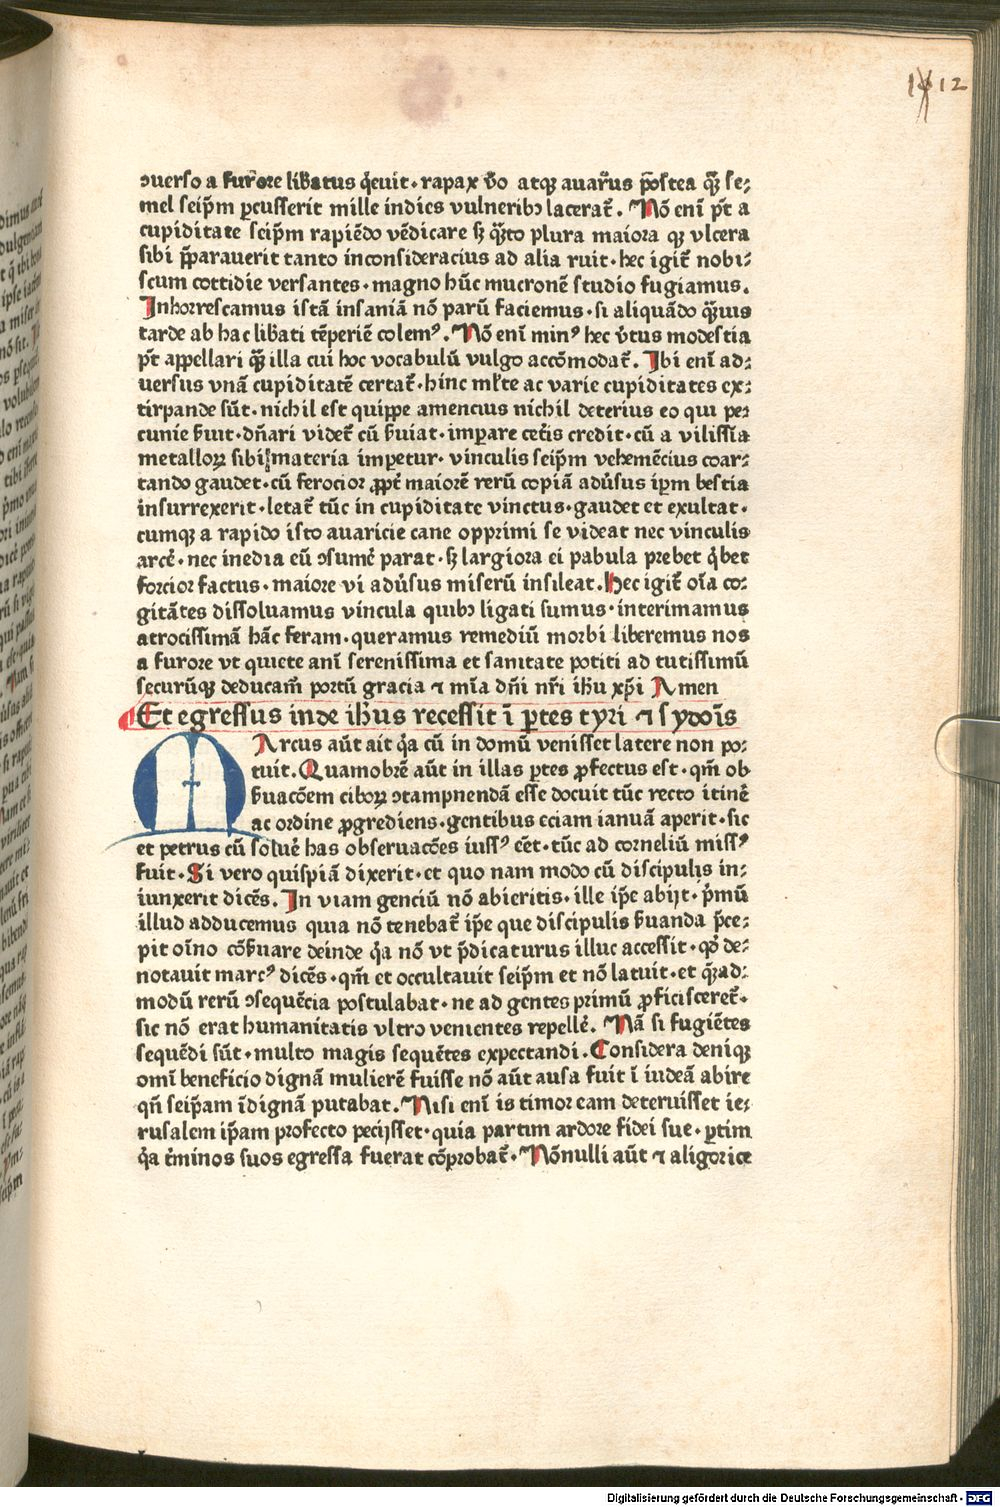 1412
ↄuerso a furore lib̄atus q̇euit · rapax v̄o atqꝫ auar⁹us p̄ostea qꝫ̄ se⸗
mel seip̄m ꝑcusserit mille indies vulneribꝰ lacerat̄ . Nō eni̅ p̄t a
cupiditate seip̄m rapiēdo vēdicare sꝫ q̄ꝫto plura maiora qꝫ vlcera
sibi p̄p̄arauerit tanto inconsideracius ad alia ruit · hec igit̄ nobi⸗
scum cottidie versantes · magno hūc mucronē studio fugiamus .
Inhorrescamus istā insaniā nō parū faciemus · si aliquādo q̄ꝫuis
tarde ab hac lib̄ati tēperiē colem⁹ . Nō enī min⁹ hec v̄tus modestia
p̄t appellari qꝫ̄ illa cui hoc vocabulū vulgo accōmodat̄ . Ibi enī ad⸗
uersus vnā cupiditatē certat̄ · hinc ml̄te ac varie cupiditates ex⸗
tirpande sūt · nichil est quippe amencius nichil deterius eo qui pe⸗
cunie s̄uit · dn̄ari videt̄ cū s̄uiat · imꝑare cet̄is credit · cū a vilissīa
metalloꝝ sibi materia imꝑetur · vinculis seip̄m vehemēcius coar⸗
tando gaudet · cū ferocior ꝓpt̄ maiorē rerū copiā adūsus ip̄m bestia
insurrexerit · letat̄ tūc in cupiditate vinctus · gaudet et exultat ·
cumqꝫ a rapido isto auaricie cane opprimi se videat nec vinculis
arcē · nec inedia eū ↄsumē parat · sꝫ largiora ei pabula prebet q̇ bet
forcior factus · maiore vi adūsus miserū insileat . Hec igit̄ oīa co⸗
gitātes dissoluamus vincula quibꝰ ligati sumus · interimamus
atrocissimā hāc feram · queramus remediū morbi liberemus nos
a furore vt quiete anī serenissima et sanitate potiti ad tutissimū
securūqꝫ deducam̄ portū gracia ⁊ mīa dn̄i nr̄i ih̄u xp̄i Amen
Et egressus inde ih̄us recessit ī ꝑtes tyri ⁊ sydoīs
MArcus aūt ait q̇a cū in domū venisset latere non po⸗
tuit . Quamobrē aūt in illas ꝑtes ꝓfectus est · qm̄ ob
s̄uacōem ciboꝝ ↄtampnendā esse docuit tūc recto itinē
ac ordine ꝓgrediens · gentibus eciam ianuā aperit · sic
et petrus cū soluē has obseruacōes iuss⁹ eēt · tūc ad corneliū miss⁹
fuit . Si vero quispiā dixerit · et quo nam modo cū discipulis in⸗
iunxerit dicēs . In viam genciū nō abieritis · ille ip̄e abijt · p̄mū
illud adducemus quia nō tenebat̄ ip̄e que discipulis s̄uanda p̄ce⸗
pit oīno cōs̄uare deinde q̇a nō vt p̄dicaturus illuc accessit · qd̄ de⸗
notauit marc⁹ dicēs · qm̄ et occultauit seip̄m et nō latuit · et q̄ꝫad⸗
modū rerū ↄsequēcia postulabat · ne ad gentes primū ꝓficisceret̄ ·
sic nō erat humanitatis vltro venientes repellē . Nā si fugiētes
sequēdi sūt · multo magis sequētes expectandi . Considera deniqꝫ
omī beneficio dignā mulierē fuisse nō aūt ausa fuit ī iudeā abire
qn̄ seip̄am īdignā putabat . Nisi enī is timor eam deteruisset ie⸗
rusalem ip̄am profecto pecijsset · quia partim ardore fidei sue · ꝑtim
q̇a t̄minos suos egressa fuerat cōprobat̄ · Nōnulli aūt ⁊ aligorice
Digitalisierung gefördert durch die Deutsche Forschungsgemeinschaft - DFG